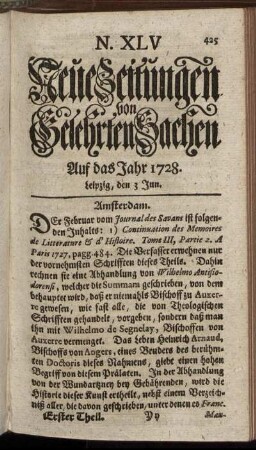 N. XLV 425
Neue Zeitungen
von
Gelehrten Sachen
Auf das Jahr 1728.
Leipzig, den 3 Jun.
Amsterdam.
DEr Februar vom Journal des Savans ist folgen-
den Inhalts: 1) Continuation des Memoires
de Litterature & d' Histoire. Tome III, Partie 2. A
Paris 1727. pagg 484. Die Verfasser erwehnen nur
der vornehmsten Schrifften dieses Theils. Dahin
rechnen sie eine Abhandlung von Wilhelmo Antisio-
dorensi, welcher die Summam geschrieben, von dem
behauptet wird, daß er niemahls Bischoff zu Auxer-
re gewesen, wie fast alle, die von Theologischen
Schrifften gehandelt, vorgeben, sondern daß man
ihn mit Wilhelmo de Segnelay, Bischoffen von
Auxerre vermenget. Das Leben Heinrich Arnaud,
Bischoffs von Angers, eines Beuders des berühm-
ten Doctoris dieses Nahmens, giebt einen hohen
Begriff von diesem Prälaten. In der Abhandlung
von der Wundartzney bey Gebährenden, wird die
Historie dieser Kunst ertheilt, nebst einem Verzeich-
niß aller, die davon geschrieben, unter denen es Franc.
Erster Theil. Yy Mau-